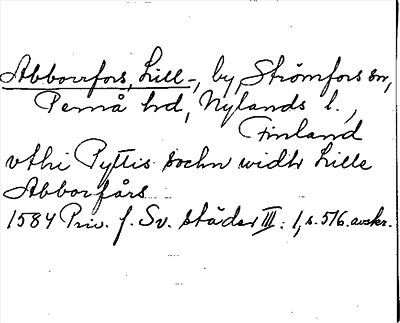 Abborrfors, Lill-, by, Strömfors sn,
Pernå hd, Nylands l.,
Finland
vthi Pyttis sochn widh Lille
Abborfårs
1584 Priv. f. Sv. städer III: 1, s. 516. avskr.